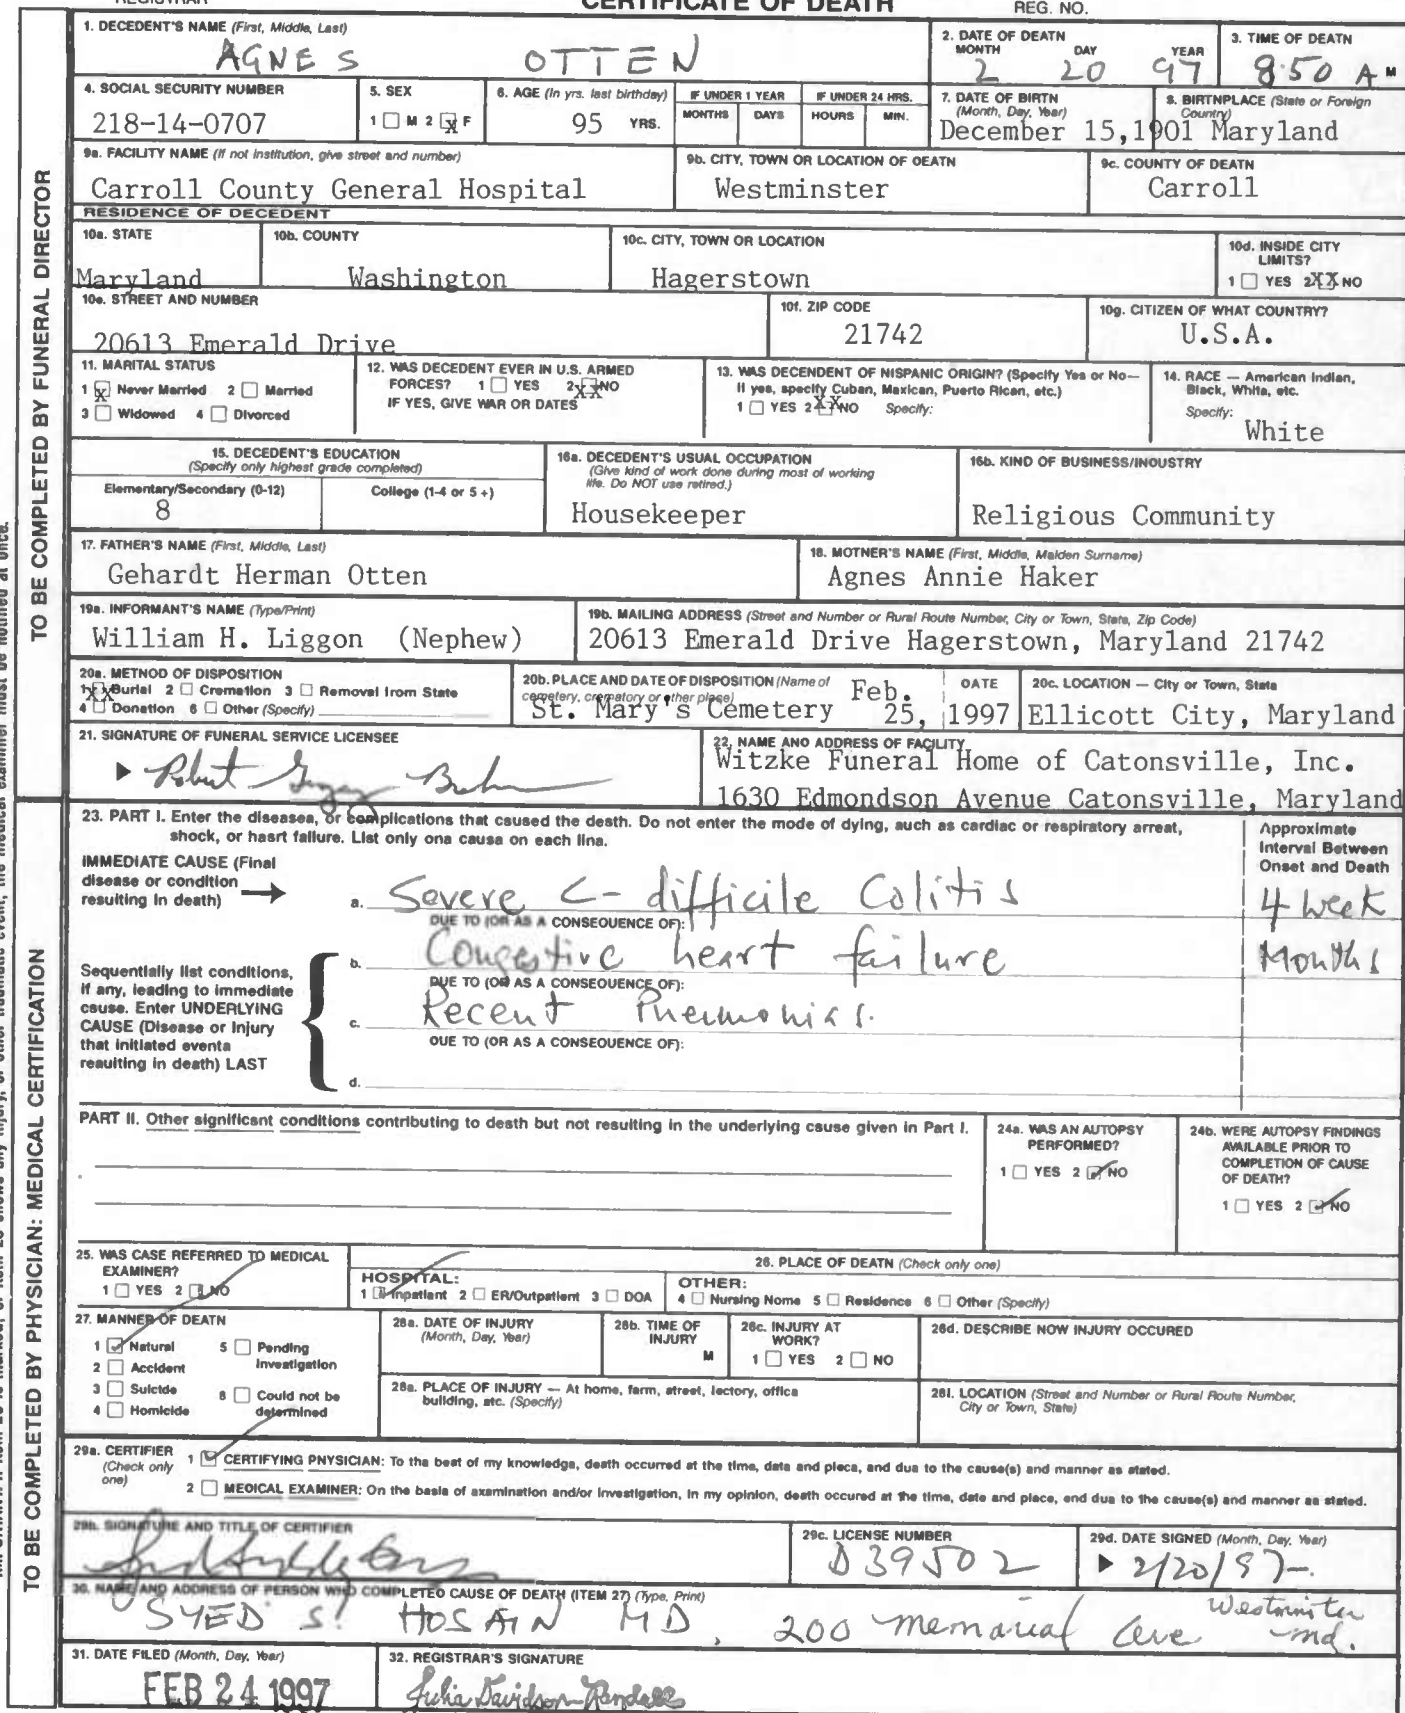 REGISTRAR
CERTIFICATE OF DEATH
REG. NO.
TO BE COMPLETED BY FUNERAL DIRECTOR
1. DECEDENT'S NAME (First, Middle, Last)
AGNES OTTEN
2. DATE OF DEATH
MONTH DAY YEAR
2 20 97
3. TIME OF DEATH
8:50 A M
4. SOCIAL SECURITY NUMBER
218-14-0707
5. SEX
1 M 2 X F
6. AGE (In yrs. last birthday)
95 YRS.
IF UNDER 1 YEAR
MONTHS DAYS
IF UNDER 24 HRS.
HOURS MIN.
7. DATE OF BIRTH
(Month, Day, Year)
December 15,1901
8. BIRTNPLACE (State or Foreign
Country)
Maryland
9a. FACILITY NAME (If not institution, give street and number)
Carroll County General Hospital
9b. CITY, TOWN OR LOCATION OF OEATN
Westminster
9c. COUNTY OF DEATN
Carroll
RESIDENCE OF DECEDENT
10a. STATE
Maryland
10b. COUNTY
Washington
10c. CITY, TOWN OR LOCATION
Hagerstown
10d. INSIDE CITY
LIMITS?
1 YES 2 XX NO
10e. STREET AND NUMBER
20613 Emerald Drive
10f. ZIP CODE
21742
10g. CITIZEN OF WHAT COUNTRY?
U.S.A.
11. MARITAL STATUS
1 X Never Married 2 Married
3 Widowed 4 Divorced
12. WAS DECEDENT EVER IN U.S. ARMED
FORCES? 1 YES 2 XX NO
IF YES, GIVE WAR OR DATES
13. WAS DECENDENT OF NISPANIC ORIGIN? (Specify Yes or No—
If yes, specify Cuban, Maxican, Puerto Rican, etc.)
1 YES 2 XX NO Specify:
14. RACE — American Indian,
Black, White, etc.
Specify:
White
15. DECEDENT'S EDUCATION
(Specify only highest grade completed)
Elementary/Secondary (0-12)
8
College (1-4 or 5 +)
16a. DECEDENT'S USUAL OCCUPATION
(Give kind of work done during most of working
life. Do NOT use retired.)
Housekeeper
16b. KIND OF BUSINESS/INOUSTRY
Religious Community
17. FATHER'S NAME (First, Middle, Last)
Gehardt Herman Otten
18. MOTNER'S NAME (First, Middle, Maiden Surname)
Agnes Annie Haker
19a. INFORMANT'S NAME (Type/Print)
William H. Liggon (Nephew)
19b. MAILING ADDRESS (Street and Number or Rural Route Number, City or Town, State, Zip Code)
20613 Emerald Drive Hagerstown, Maryland 21742
20a. METNOD OF DISPOSITION
1 XX Burial 2 Cremation 3 Removal from State
4 Donation 6 Other (Specify)
20b. PLACE AND DATE OF DISPOSITION (Name of
cemetery, crematory or other place)
St. Mary's Cemetery
DATE
Feb. 25, 1997
20c. LOCATION — City or Town, State
Ellicott City, Maryland
21. SIGNATURE OF FUNERAL SERVICE LICENSEE
Robert
22. NAME ANO ADDRESS OF FACILITY
Witzke Funeral Home of Catonsville, Inc.
1630 Edmondson Avenue Catonsville, Maryland
TO BE COMPLETED BY PHYSICIAN: MEDICAL CERTIFICATION
23. PART I. Enter the diseases, or complications that caused the death. Do not enter the mode of dying, such as cardiac or respiratory arreat,
shock, or hasrt failure. List only ona causa on each lina.
Approximate
Interval Between
Onset and Death
IMMEDIATE CAUSE (Final
disease or condition
resulting In death)
a. Severe C- difficile Colitis
4 week
DUE TO (OR AS A CONSEOUENCE OF):
b. Congestive heart failure
Months
Sequentially list conditions,
if any, leading to immediate
cause. Enter UNDERLYING
CAUSE (Disease or Injury
that initiated eventa
reaulting in death) LAST
DUE TO (OR AS A CONSEOUENCE OF):
c. Recent Pneumonias.
OUE TO (OR AS A CONSEOUENCE OF):
d.
PART II. Other significant conditions contributing to death but not resulting in the underlying cause given in Part I.
24a. WAS AN AUTOPSY
PERFORMED?
1 YES 2 NO
24b. WERE AUTOPSY FINDINGS
AVAILABLE PRIOR TO
COMPLETION OF CAUSE
OF DEATH?
1 YES 2 NO
25. WAS CASE REFERRED TO MEDICAL
EXAMINER?
1 YES 2 NO
26. PLACE OF DEATH (Check only one)
HOSPITAL:
1 Inpatient 2 ER/Outpatient 3 DOA
OTHER:
4 Nursing Nome 5 Residence 6 Other (Specify)
27. MANNER OF DEATH
1 Natural 5 Pending
Investigation
2 Accident
3 Suicide 6 Could not be
determined
4 Homicide
28a. DATE OF INJURY
(Month, Day, Year)
28b. TIME OF
INJURY
M
28c. INJURY AT
WORK?
1 YES 2 NO
28d. DESCRIBE NOW INJURY OCCURED
28a. PLACE OF INJURY — At home, farm, atreet, lectory, offica
building, atc. (Specify)
28l. LOCATION (Street and Number or Rural Route Number,
City or Town, State)
29a. CERTIFIER
(Check only
one)
1 CERTIFYING PNYSICIAN: To tha beat of my knowledga, death occurred at the tima, data and pleca, and dua to the cause(s) and manner as atated.
2 MEOICAL EXAMINER: On the basla of axamination and/or Investigation, in my opinion, death occured at the time, date and place, end due to the cause(s) and manner as stated.
29b. SIGNATURE AND TITLE OF CERTIFIER
29c. LICENSE NUMBER
D39502
29d. DATE SIGNED (Month, Day, Year)
2/20/97
30. NAME AND ADDRESS OF PERSON WHO COMPLETEO CAUSE OF DEATH (ITEM 27) (Type, Print)
SYED S. HOSAIN MD, 200 memorial Ave Westminster md.
31. DATE FILED (Month, Day, Year)
FEB 24 1997
32. REGISTRAR'S SIGNATURE
Julia Davidson-Randall